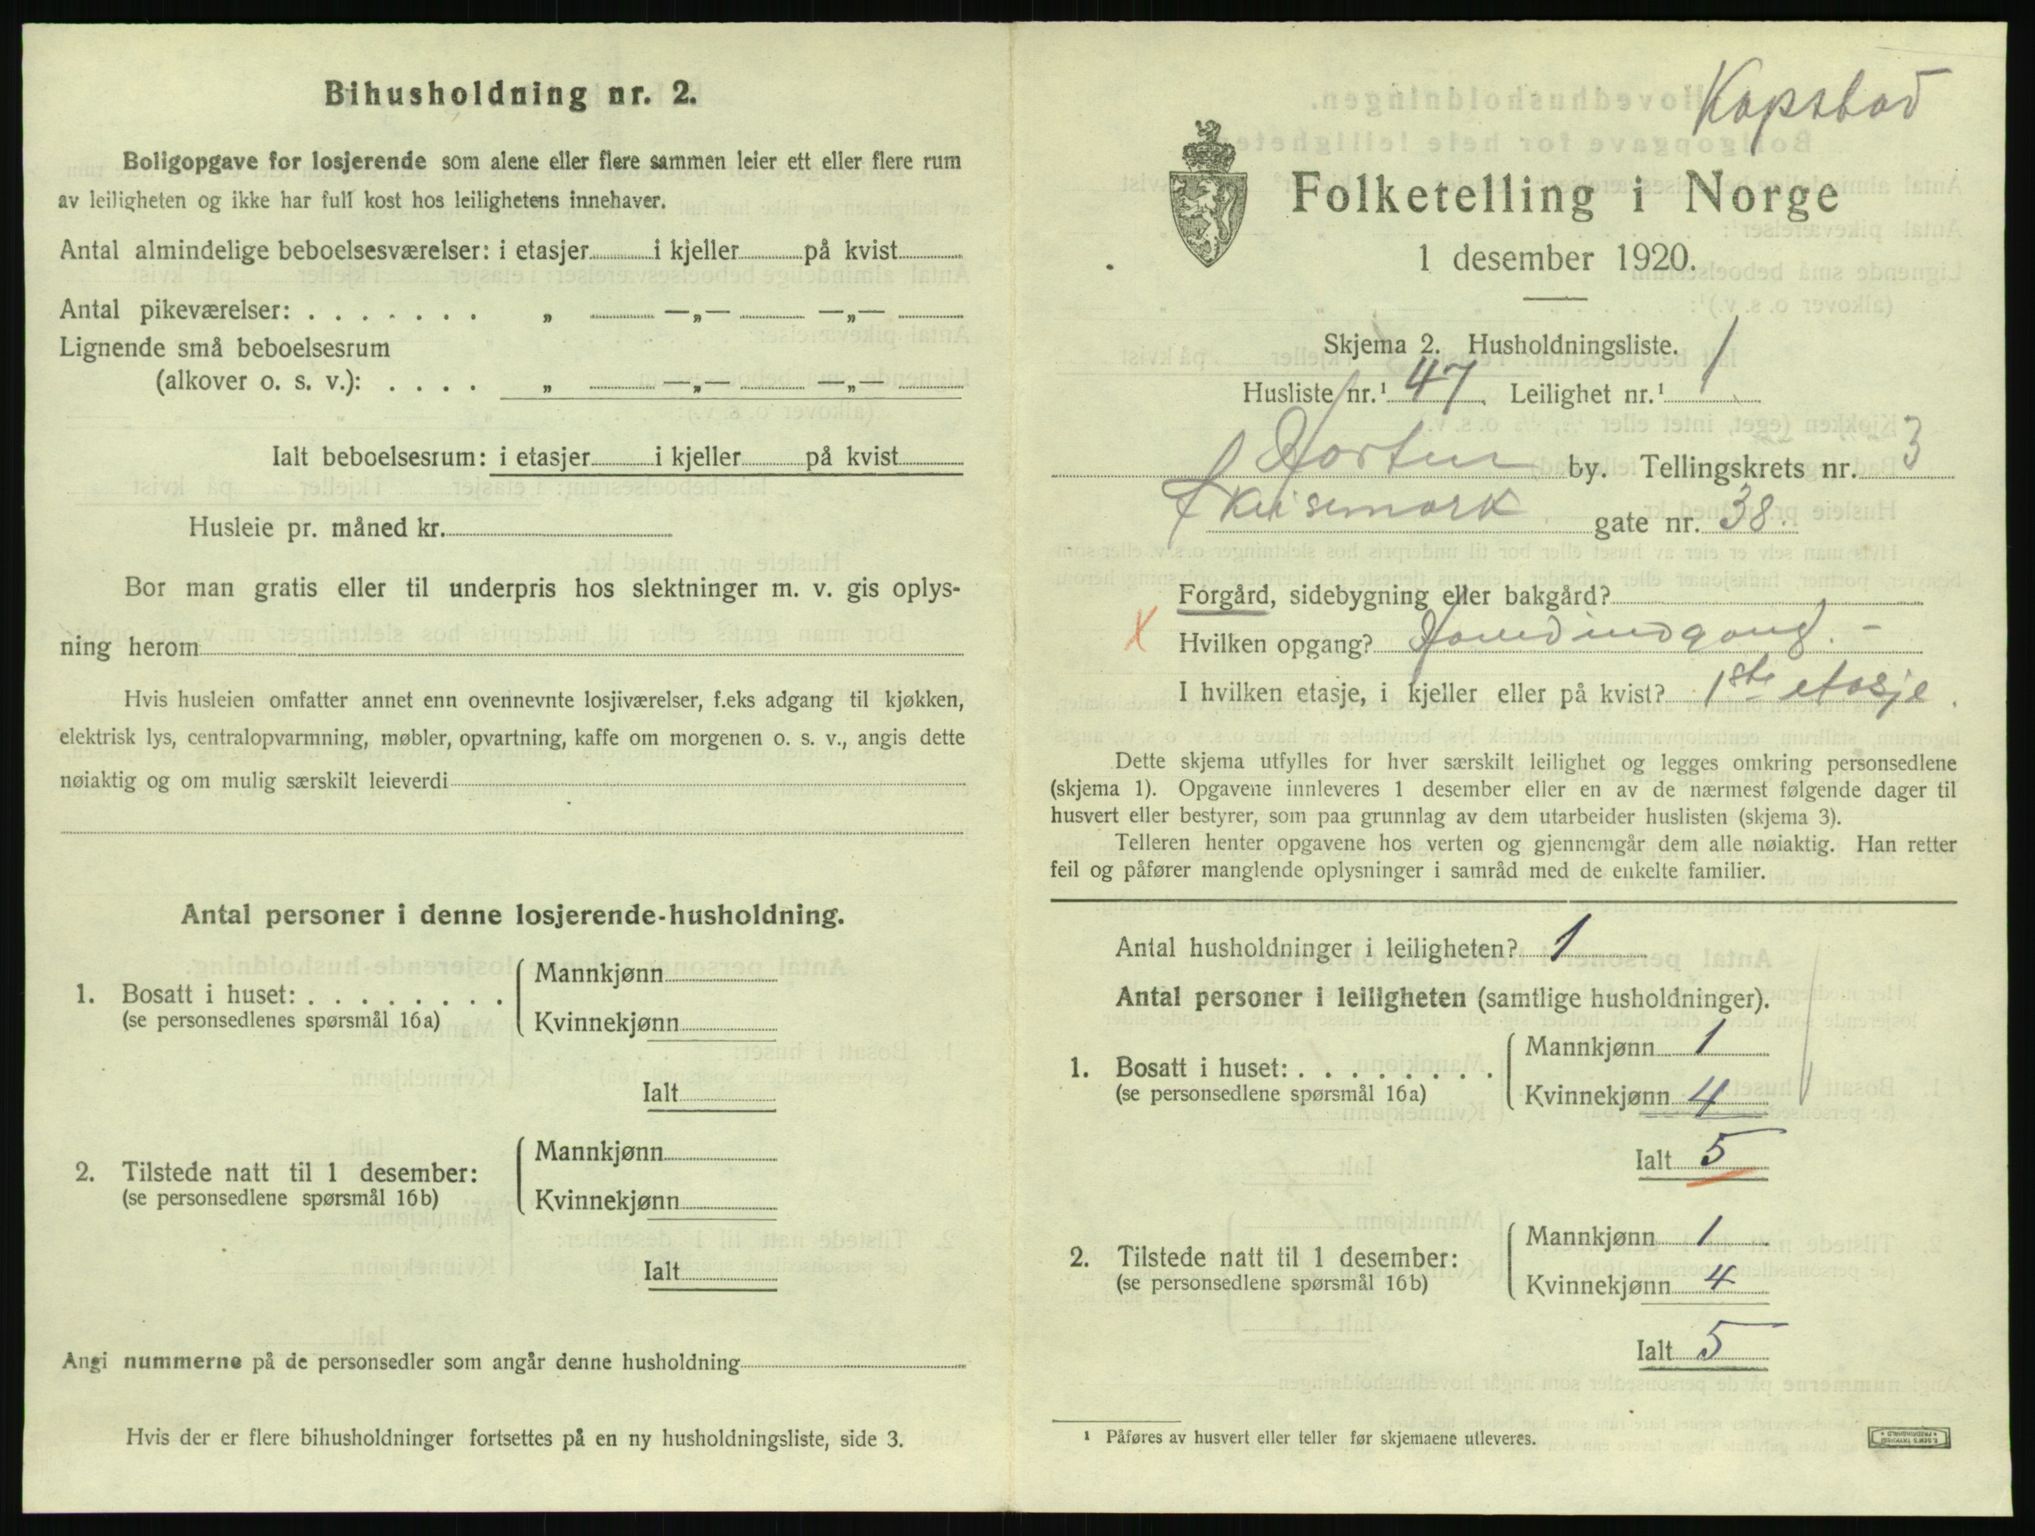 Bihusholdning nr. 2.
Boligopgave for losjerende som alene eller flere sammen leier ett eller flere rum
av leiligheten og ikke har full kost hos leilighetens innehaver.
Antal almindelige beboelsesværelser: i etasjer i kjeller på kvist
Antal pikeværelser: . . . . . . . „ —„— —„—
Lignende små beboelsesrum
(alkover o. s. v.): . . . . „ —„— —„—
Ialt beboelsesrum: i etasjer i kjeller på kvist
Husleie pr. måned kr.
Bor man gratis eller til underpris hos slektninger m. v. gis oplys-
ning herom
Hvis husleien omfatter annet enn ovennevnte losjiværelser, f.eks adgang til kjøkken,
elektrisk lys, centralopvarmning, møbler, opvartning, kaffe om morgenen o. s. v., angis dette
nøiaktig og om mulig særskilt leieverdi
Antal personer i denne losjerende-husholdning.
1. Bosatt i huset: . . . . . . . .
(se personsedlenes spørsmål 16a)
Mannkjønn
Kvinnekjønn
Ialt
2. Tilstede natt til 1 desember:
(se personsedlene spørsmål 16b)
Mannkjønn
Kvinnekjønn
Ialt
Angi nummerne på de personsedler som angår denne husholdning
Hvis der er flere bihusholdninger fortsettes på en ny husholdningsliste, side 3.
Kapstad
Folketelling i Norge
1 desember 1920.
Skjema 2. Husholdningsliste.
Husliste nr.¹ 47 Leilighet nr.¹ 1
Horten by. Tellingskrets nr. 3
gate nr. 38.
Forgård, sidebygning eller bakgård?
X Hvilken opgang? -
I hvilken etasje, i kjeller eller på kvist? 1ste etasje
Dette skjema utfylles for hver særskilt leilighet og legges omkring personsedlene
(skjema 1). Opgavene innleveres 1 desember eller en av de nærmest følgende dager til
husvert eller bestyrer, som paa grunnlag av dem utarbeider huslisten (skjema 3).
Telleren henter opgavene hos verten og gjennemgår dem alle nøiaktig. Han retter
feil og påfører manglende oplysninger i samråd med de enkelte familier.
Antal husholdninger i leiligheten? 1
Antal personer i leiligheten (samtlige husholdninger).
1. Bosatt i huset: . . . . . . . .
(se personsedlene spørsmål 16a)
Mannkjønn 1
Kvinnekjønn 4
Ialt 5
2. Tilstede natt til 1 desember:
(se personsedlene spørsmål 16b)
Mannkjønn 1
Kvinnekjønn 4
Ialt 5
¹ Påføres av husvert eller teller før skjemaene utleveres.